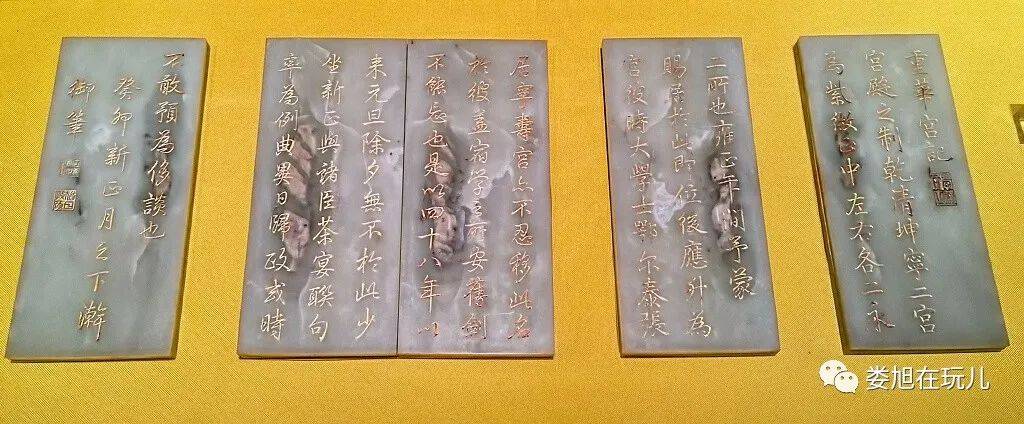 重華宮記
宮殿之制乾清坤寧二宮
為紫微正中左右各二永
二所也雍正年間予蒙
賜居於此即位後應升為
宮彼時大學士鄂尔泰張
居寧壽宮亦不忍移此名
於彼蓋宿學之所安舊劍
不能忘也是以四十八年以
来元旦除夕無不於此少
坐新正與諸臣茶宴聯句
率為例典異日歸政或時
不敢預為侈談也
癸卯新正月之下澣
御筆
娄旭在玩儿